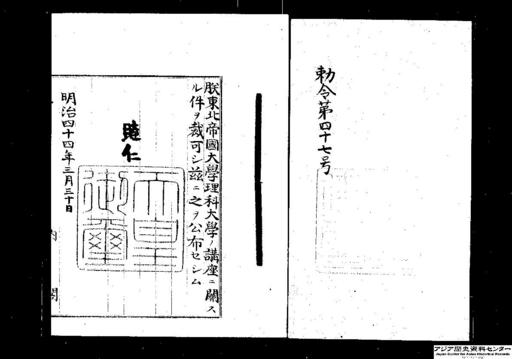 勅令第四十七号
朕東北帝國大學理科大學ノ講座ニ關ス
ル件ヲ裁可シ茲ニ之ヲ公布セシム
睦仁
天皇御璽
明治四十四年三月三十日
内閣
アジア歴史資料センター
Japan Center for Asian Historical Records